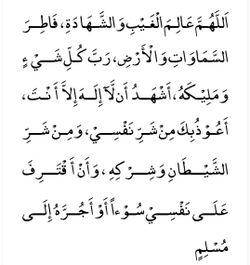 اَللَّهُمَّ عَالِمَ الْغَيْبِ وَالشَّهَادَةِ، فَاطِرَ
السَّمَاوَاتِ وَالْأَرْضِ، رَبَّ كُلِّ شَيْءٍ
وَمَلِيْكَهُ، أَشْهَدُ أَن لَّآ إِلَهَ إِلاَّ أَنْتَ،
أَعُوْذُ بِكَ مِنْ شَرِّ نَفْسِيْ، وَمِنْ شَرِّ
الشَّيْطَانِ وَشِرْكِهِ، وَأَنْ أَقْتَرِفَ
عَلَى نَفْسِيْ سُوْءاً أَوْ أَجُرَّهُ إِلَى
مُسْلِمٍ